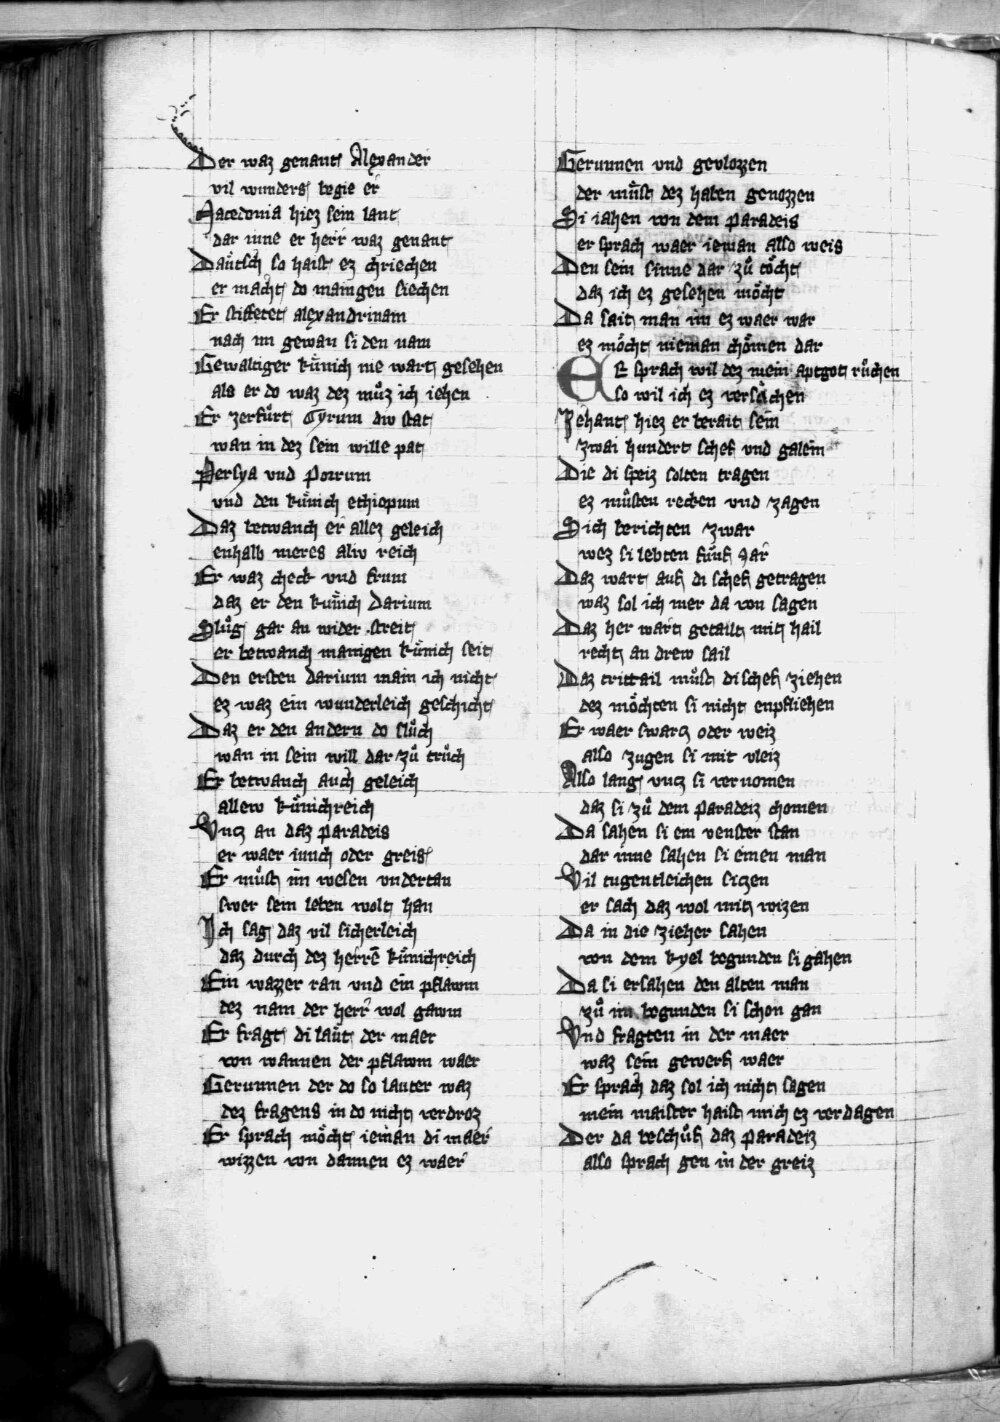 Der waz genant Alexander
vil wunders begie er
Macedonia hiez sein lant
dar inne er herr waz genant
Daůtsch so haist ez chriechen
er macht do manigen siechen
Er stiffetet alexandrinam
nach im gewan si den nam
Gewaltiger kůnich nie wart gesehen
als er do waz dez můz ich iehen
Er zerfůrt Tyrum diw stat
wan in dez sein wille pat
Persya vnd Porrum
vnd den kůnich ethiopum
Daz betwanch er allez geleich
enhalb meres aliv reich
Er waz check vnd frum
daz er den kůnich Darium
Slůg gar an wider streit
er betwanch manigen kůnich seit
Den ersten darium main ich nicht
ez waz ein wunderleich geschicht
Daz er den andern do slůch
wan in sein will dar zů trůch
Er betwanch auch geleich
allew kůnichreich
Vncz an daz paradeis
er waer iunch oder greis
Er můst im wesen vndertan
swer sein leben wolt han
Ich sag daz vil sicherleich
daz durch dez herrē kůnichreich
Ein wazzer ran vnd ein pflawm
dez nam der herr wol gawm
Er fragt di laůt der maer
von wannen der pflawm waer
Gerunnen der do so lauter waz
dez fragens in do nicht verdroz
Er sprach mŏcht ieman di maer
wizzen von dannen ez waer
Gerunnen vnd gevlozzen
der můst dez haben genozzen
Si iahen von dem paradeis
er sprach waer ieman also weis
Den sein sinne dar zů tŏcht
daz ich ez gesehen mŏcht
Da sait man im ez waer war
ez mŏcht nieman chŏmen dar
ER sprach wil dez mein aptgot růchen
so wil ich ez versůchen
Zehant hiez er berait sein
zwai hundert schef vnd galein
Die di speiz solten tragen
ez můsten recken vnd zagen
Sich berichten zwar
wez si lebten fůnf iar
Daz wart auf di schef getragen
waz sol ich mer da von sagen
Daz her wart getailt mit hail
recht an drew tail
Daz trittail můst di schef ziehen
dez mŏchten si nicht enpfliehen
Er waer swarcz oder weiz
also zugen si mit vleiz
Also lang vncz si vernomen
daz si zů dem paradeiz chomen
Da sahen si ein venster stan
dar inne sahen si einen man
Vil tugentleichen siczen
er sach daz wol mit wizen
Da in die zieher sahen
von dem kyel begunden si gahen
Da si ersahen den alten man
zů im begunden si schon gan
Vnd fragten in der maer
waz sein gewerf waer
Er sprach daz sol ich nicht sagen
mein maister haist mich ez verdagen
Der da beschůf daz paradeiz
also sprach gen in der greiz